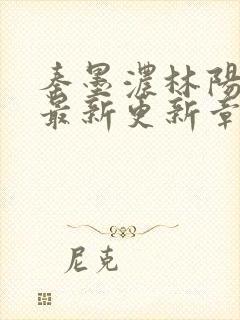 秦墨濃林陽
最新更新章
尼克